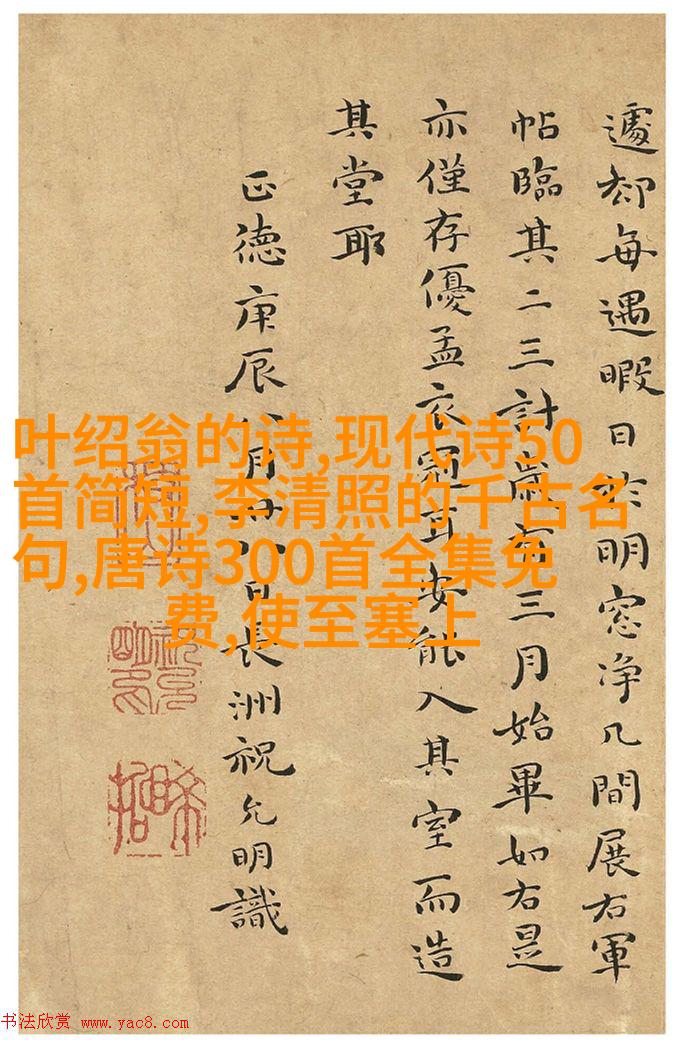 遽却每遇暇日於明窓净几間展右軍
帖臨其二三計歲有三月始畢如右是
亦僅存優孟衣冠耳安能入其室而造
其堂耶
正德庚辰八月廿八日長洲祝允明識
叶绍翁的诗,现代诗50
首简短,李清照的千古名
句,唐诗300首全集免
费,使至塞上
书法欣赏 www.yac8.com